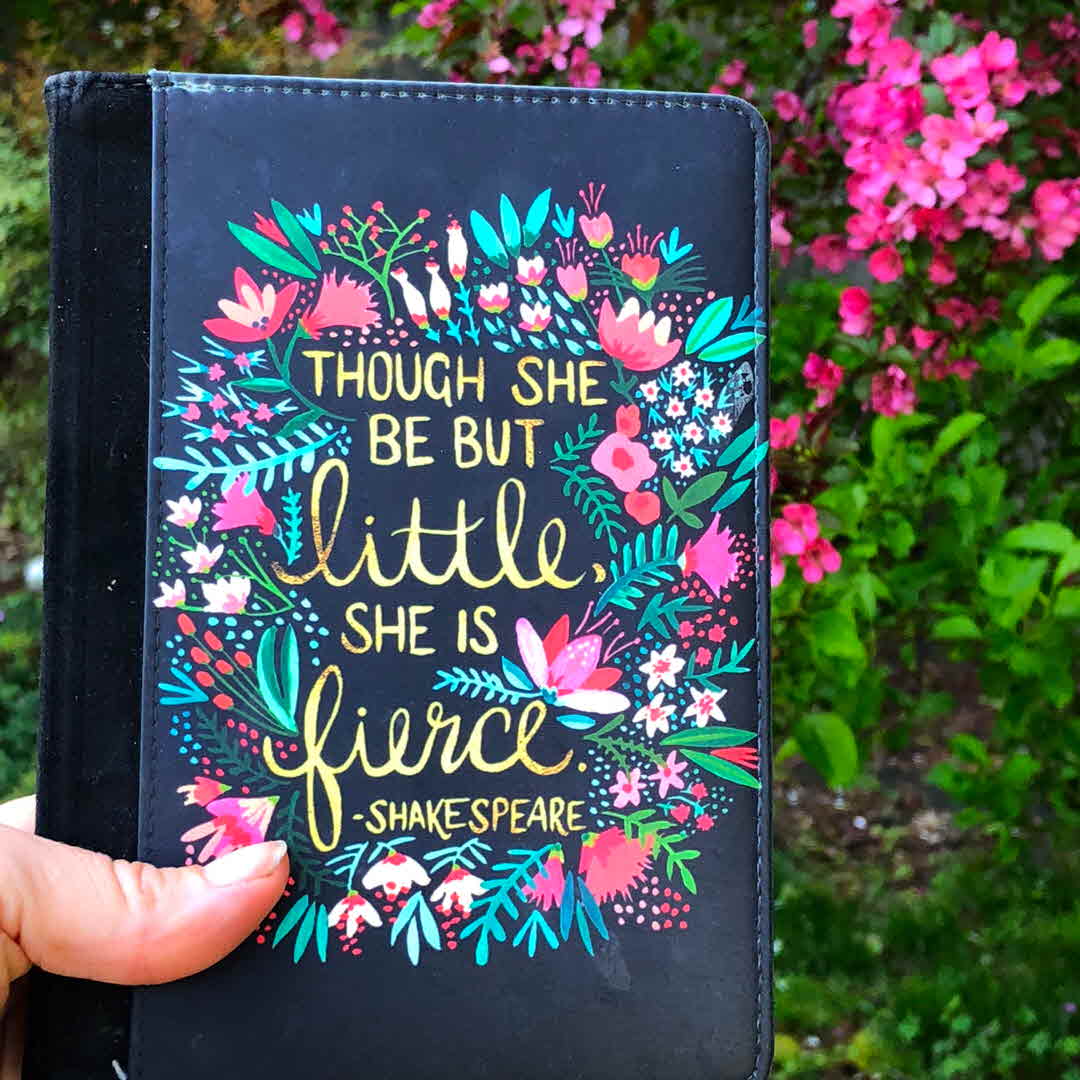 THOUGH SHE
BE BUT
little,
SHE IS
fierce.
-SHAKESPEARE